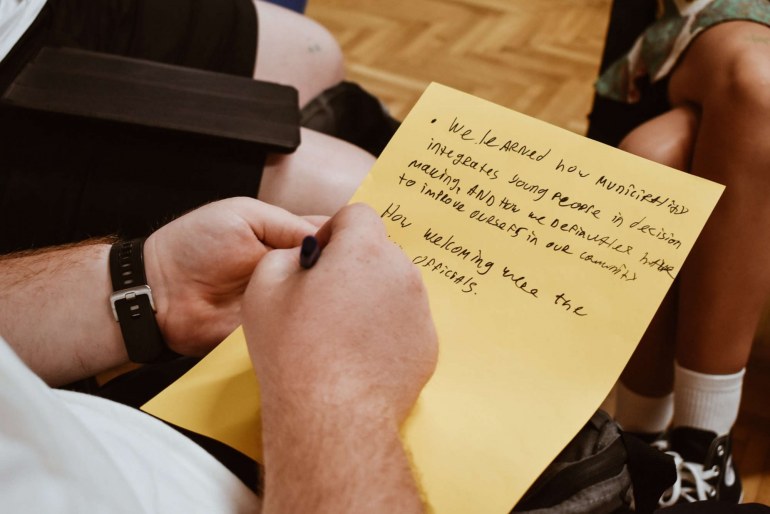 • We leARNed how MUNiCiPAliTy
integrates young people in decision
making, AND How we DefiNiTely have
to improve ourselfs in our comuniTy
How welcoming weRe the
officiAls.